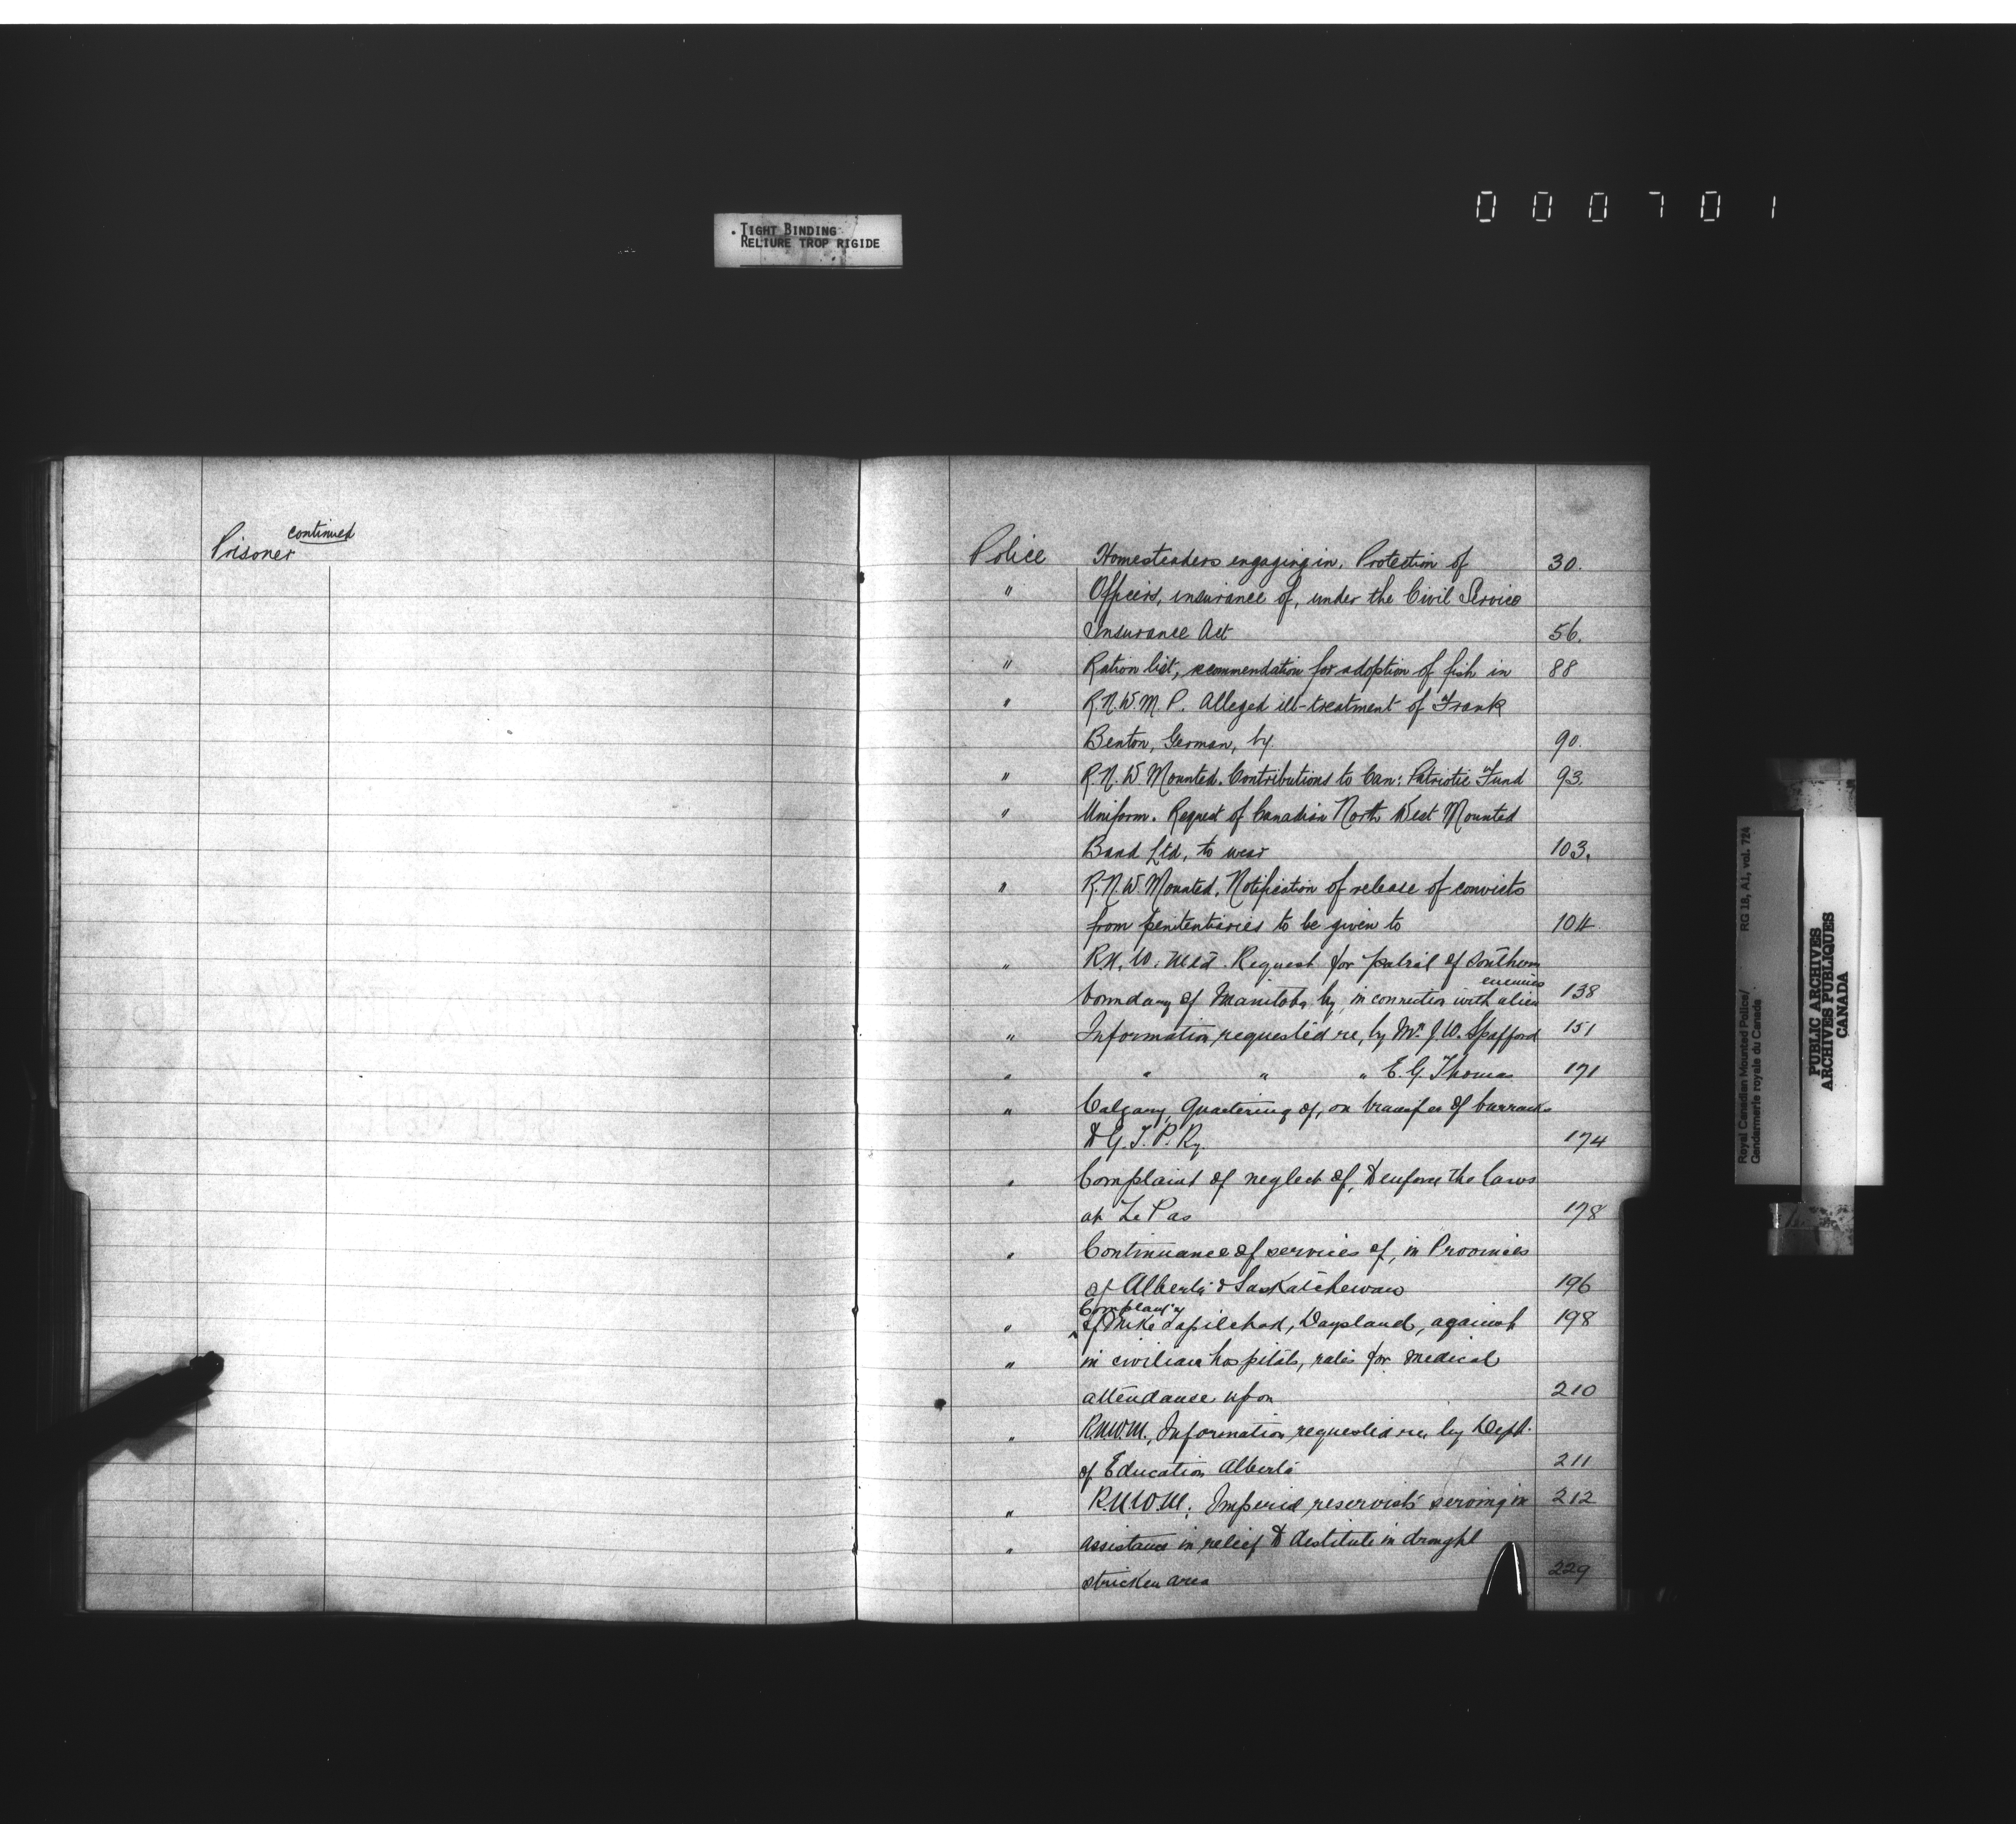 000701
TIGHT BINDING
RELIURE TROP RIGIDE
continued
Prisoner
Police Homesteaders engaging in. Protection of 30.
" Officers, insurance of, under the Civil Service
Insurance Act 56.
" Ration list, recommendation for adoption of fish in 88
" R.N.W.M.P. Alleged ill-treatment of Frank
Benton, German, by. 90.
" R.N.W. Mounted. Contributions to Can: Patriotic Fund 93.
" Uniform. Request of Canadian North West Mounted
Band Ltd, to wear 103.
" R.N.W. Mounted. Notification of release of convicts
from penitentiaries to be given to 104
" R.N.W. Mtd. Request for patrol of Southern
enemies
boundary of Manitoba by, in connection with alien 138
" Information requested re, by Mr J.W. Spafford 151
" " " " E.G. Thomas 171
" Calgary, Quartering of, on transfer of barracks
to G.T.P. Ry. 174
" Complaint of neglect of, to enforce the laws
at Le Pas 178
" Continuance of services of, in Provinces
of Alberta & Saskatchewan 196
Complaint
" of Mike Daysland, against 198
" in civilian hospitals, rates for medical
attendance upon 210
" R.N.W.M., Information requested re, by Dept.
of Education Alberta 211
" R.N.W.M. Imperial reservists serving in 212
" assistance in relief to destitute in drought
stricken area 229
Royal Canadian Mounted Police/ RG 18, A1, vol. 724
Gendarmerie royale du Canada
PUBLIC ARCHIVES
ARCHIVES PUBLIQUES
CANADA